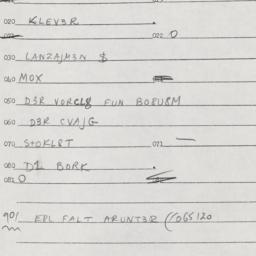 020 KLEV3R .
022 0
030 LANZAJM3N $
040 MOX
050 D3R VORCL8 FUN BOBU8M
060 D3R CVAJG
070 STOKL8T 071 —
080 D1 BORK .
081 0
901 EPL FALT ARUNT3R (065120